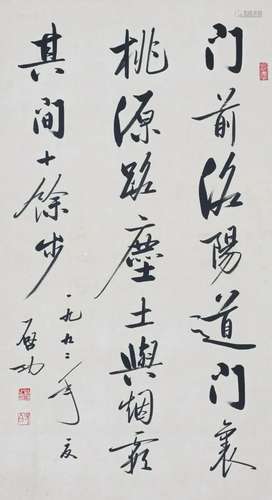 门前洛陽道门裏
桃源路塵土與烟霞
其間十餘步
一九九二年夏
启功